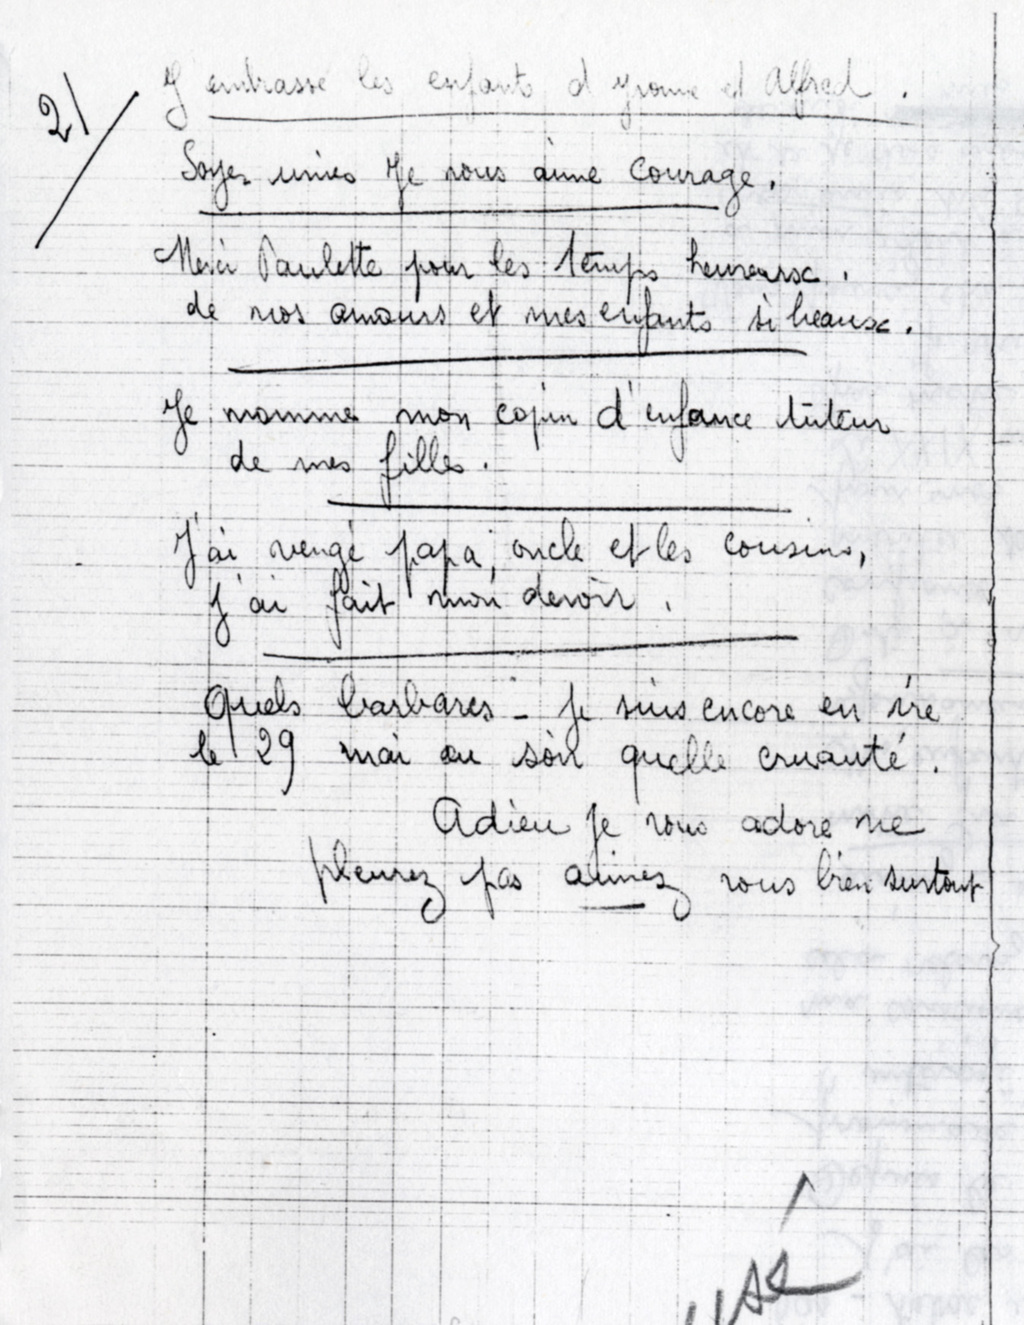 2)
J'embrasse les enfants d'Yvonne et Alfred.
Soyez unies Je vous aime Courage.
Merci Paulette pour les temps heureux.
de nos amours et mes enfants si beaux.
Je nomme mon copin d'enfance tuteur
de mes filles.
J'ai vengé papa, oncle et les cousins,
J'ai fait mon devoir.
Quels barbares - Je suis encore en vie
le 29 mai au soir quelle cruauté.
Adieu je vous adore ne
pleurez pas aimez vous bien surtout